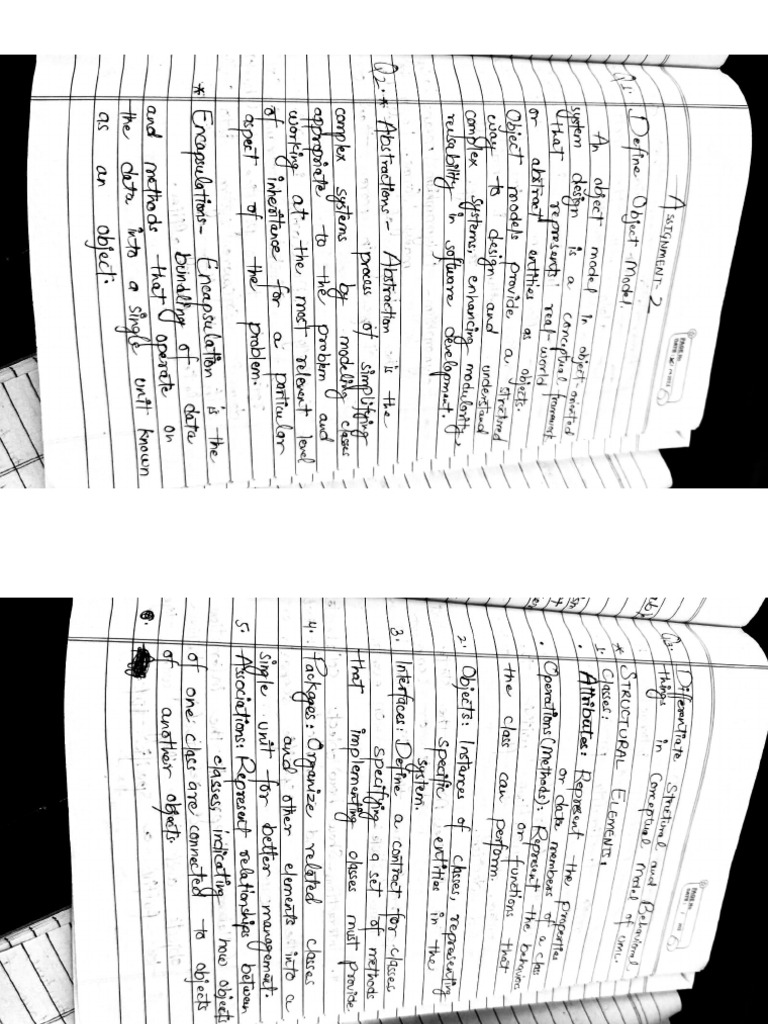 ASSIGNMENT-2
Q1. Define Object Model.
An object model in object-oriented
system design is a conceptual framework
that represents real-world
or abstract entities as objects.
Object models provide a structured
way to design and understand
complex systems, enhancing modularity &
reusability in software development.
Q2. * Abstractions:- Abstraction is the
process of simplifying
complex systems by modeling classes
appropriate to the problem and
working at the most relevent level
of inheritance for a particular
aspect of the problem.
* Encapsulations- Encapsulation is the
bundling of data
and methods that operate on
the data into a single unit known
as an object.
Q3. Differentiate Structural and Behavioral
things in Conceptual Model of UML.
* STRUCTURAL ELEMENTS:
1. Classes:
• Attributes: Represent the properties
or data members of a class
• Operations (Methods): Represent the behaviors
or functions that
the class can perform.
2. Objects: Instances of classes, representing
specific entities in the
system.
3. Interfaces: Define a contract for classes
specifying a set of methods
that implementing classes must provide
4. Packages: Organize related classes
and other elements into a
single unit for better management.
5. Associations: Represent relationships between
classes, indicating how objects
of one class are connected to objects
of another objects.